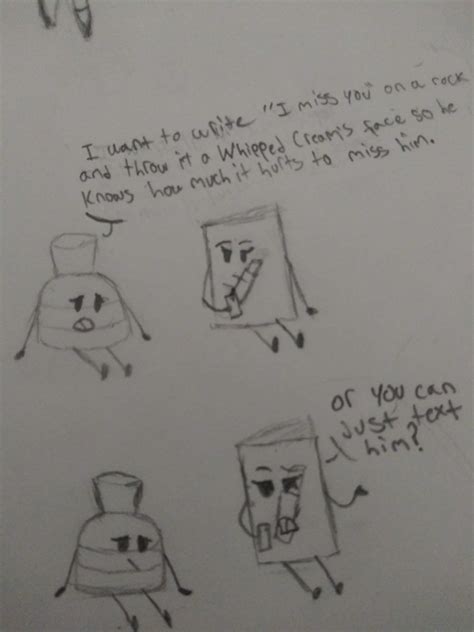 I want to write "I miss you" on a rock
and throw it a Whipped Cream's face so he
knows how much it hurts to miss him.
or you can
just text
him?